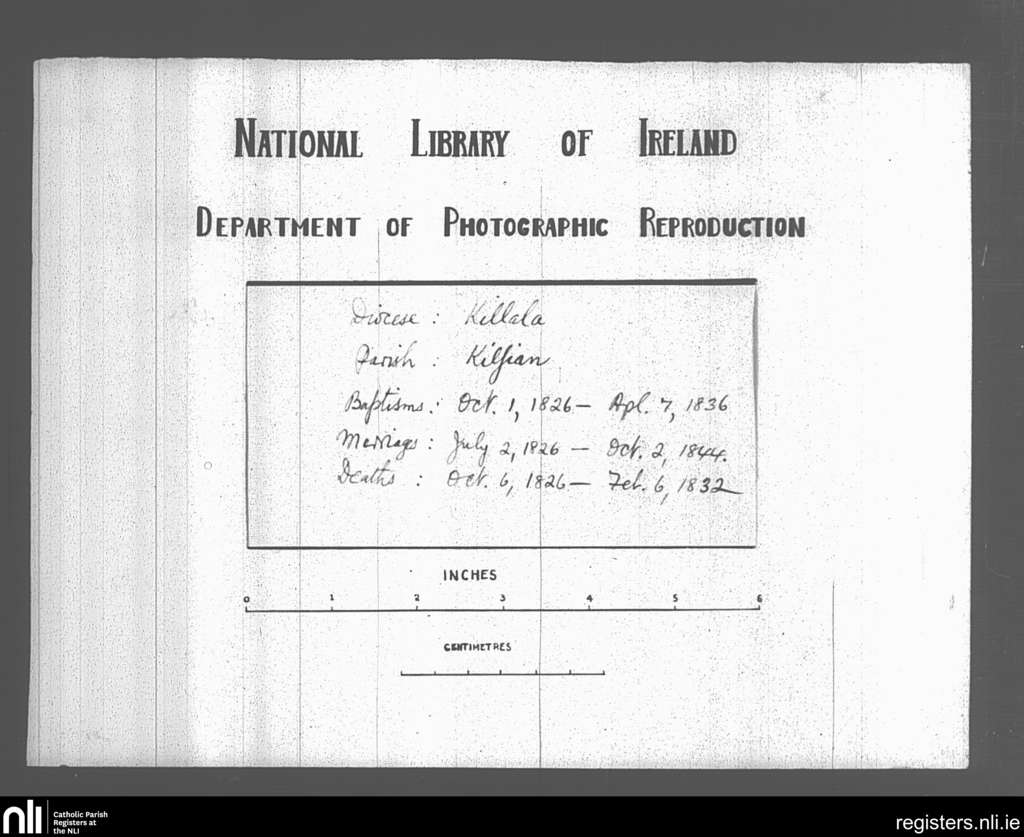 NATIONAL LIBRARY OF IRELAND
DEPARTMENT OF PHOTOGRAPHIC REPRODUCTION
Diocese : Killala
Parish : Kilfian
Baptisms : Oct. 1, 1826 — Apl. 7, 1836
Marriages : July 2, 1826 — Oct. 2, 1844.
Deaths : Oct. 6, 1826 — Feb. 6, 1832
INCHES
0 1 2 3 4 5 6
CENTIMETRES
nli Catholic Parish
Registers at
the NLI
registers.nli.ie